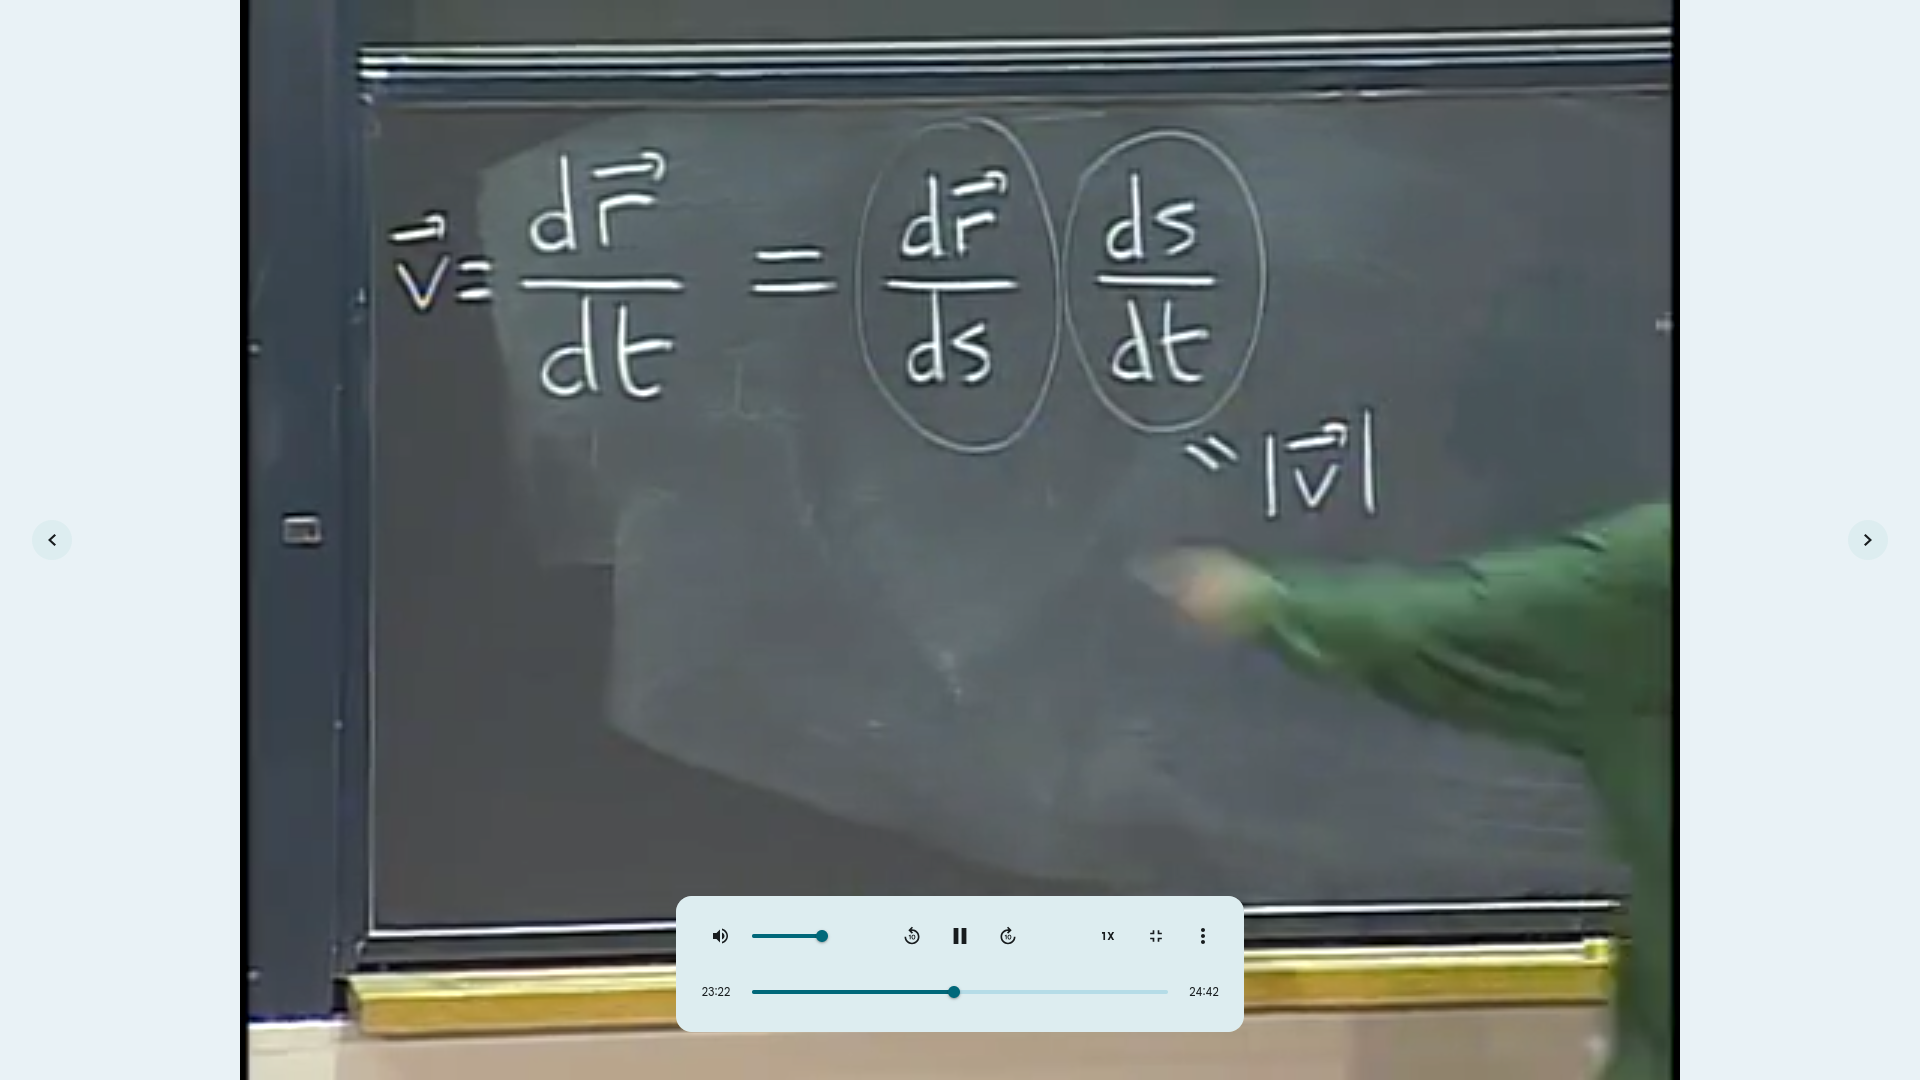 v⃗ = dr⃗/dt = dr⃗/ds ds/dt
= |v⃗|
10 10 1X
23:22 24:42